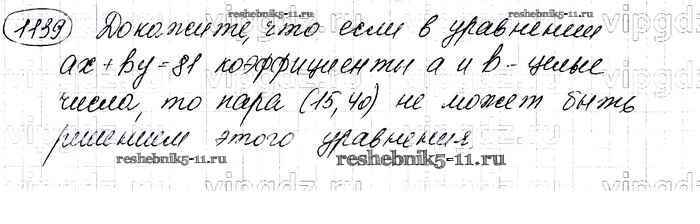 1139 Докажите, что если в уравнении
ax + by = 81 коэффициенты a и b - целые
числа, то пара (15, 40) не может быть
решением этого уравнения
reshebnik5-11.ru
reshebnik5-11.ru
reshebnik5-11.ru
vipgdz.ru